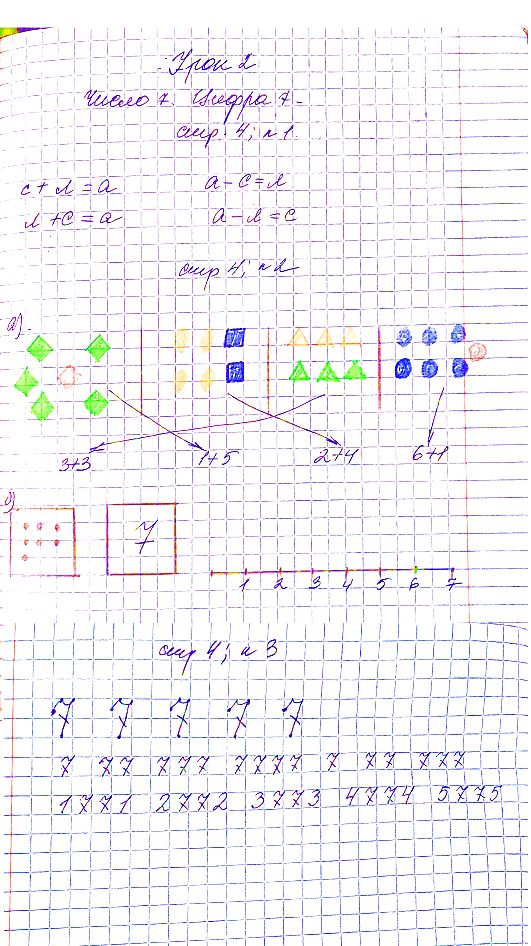 Урок 2
Число 7. Цифра 7.
стр. 4; № 1.
с + л = а
а - с = л
л + с = а
а - л = с
стр 4; № 2
а).
3+3 1+5 2+4 6+1
б)
7
1 2 3 4 5 6 7
стр 4; № 3
7 7 7 7 7
7 77 777 7777 7 77 777
1771 2772 3773 4774 5775